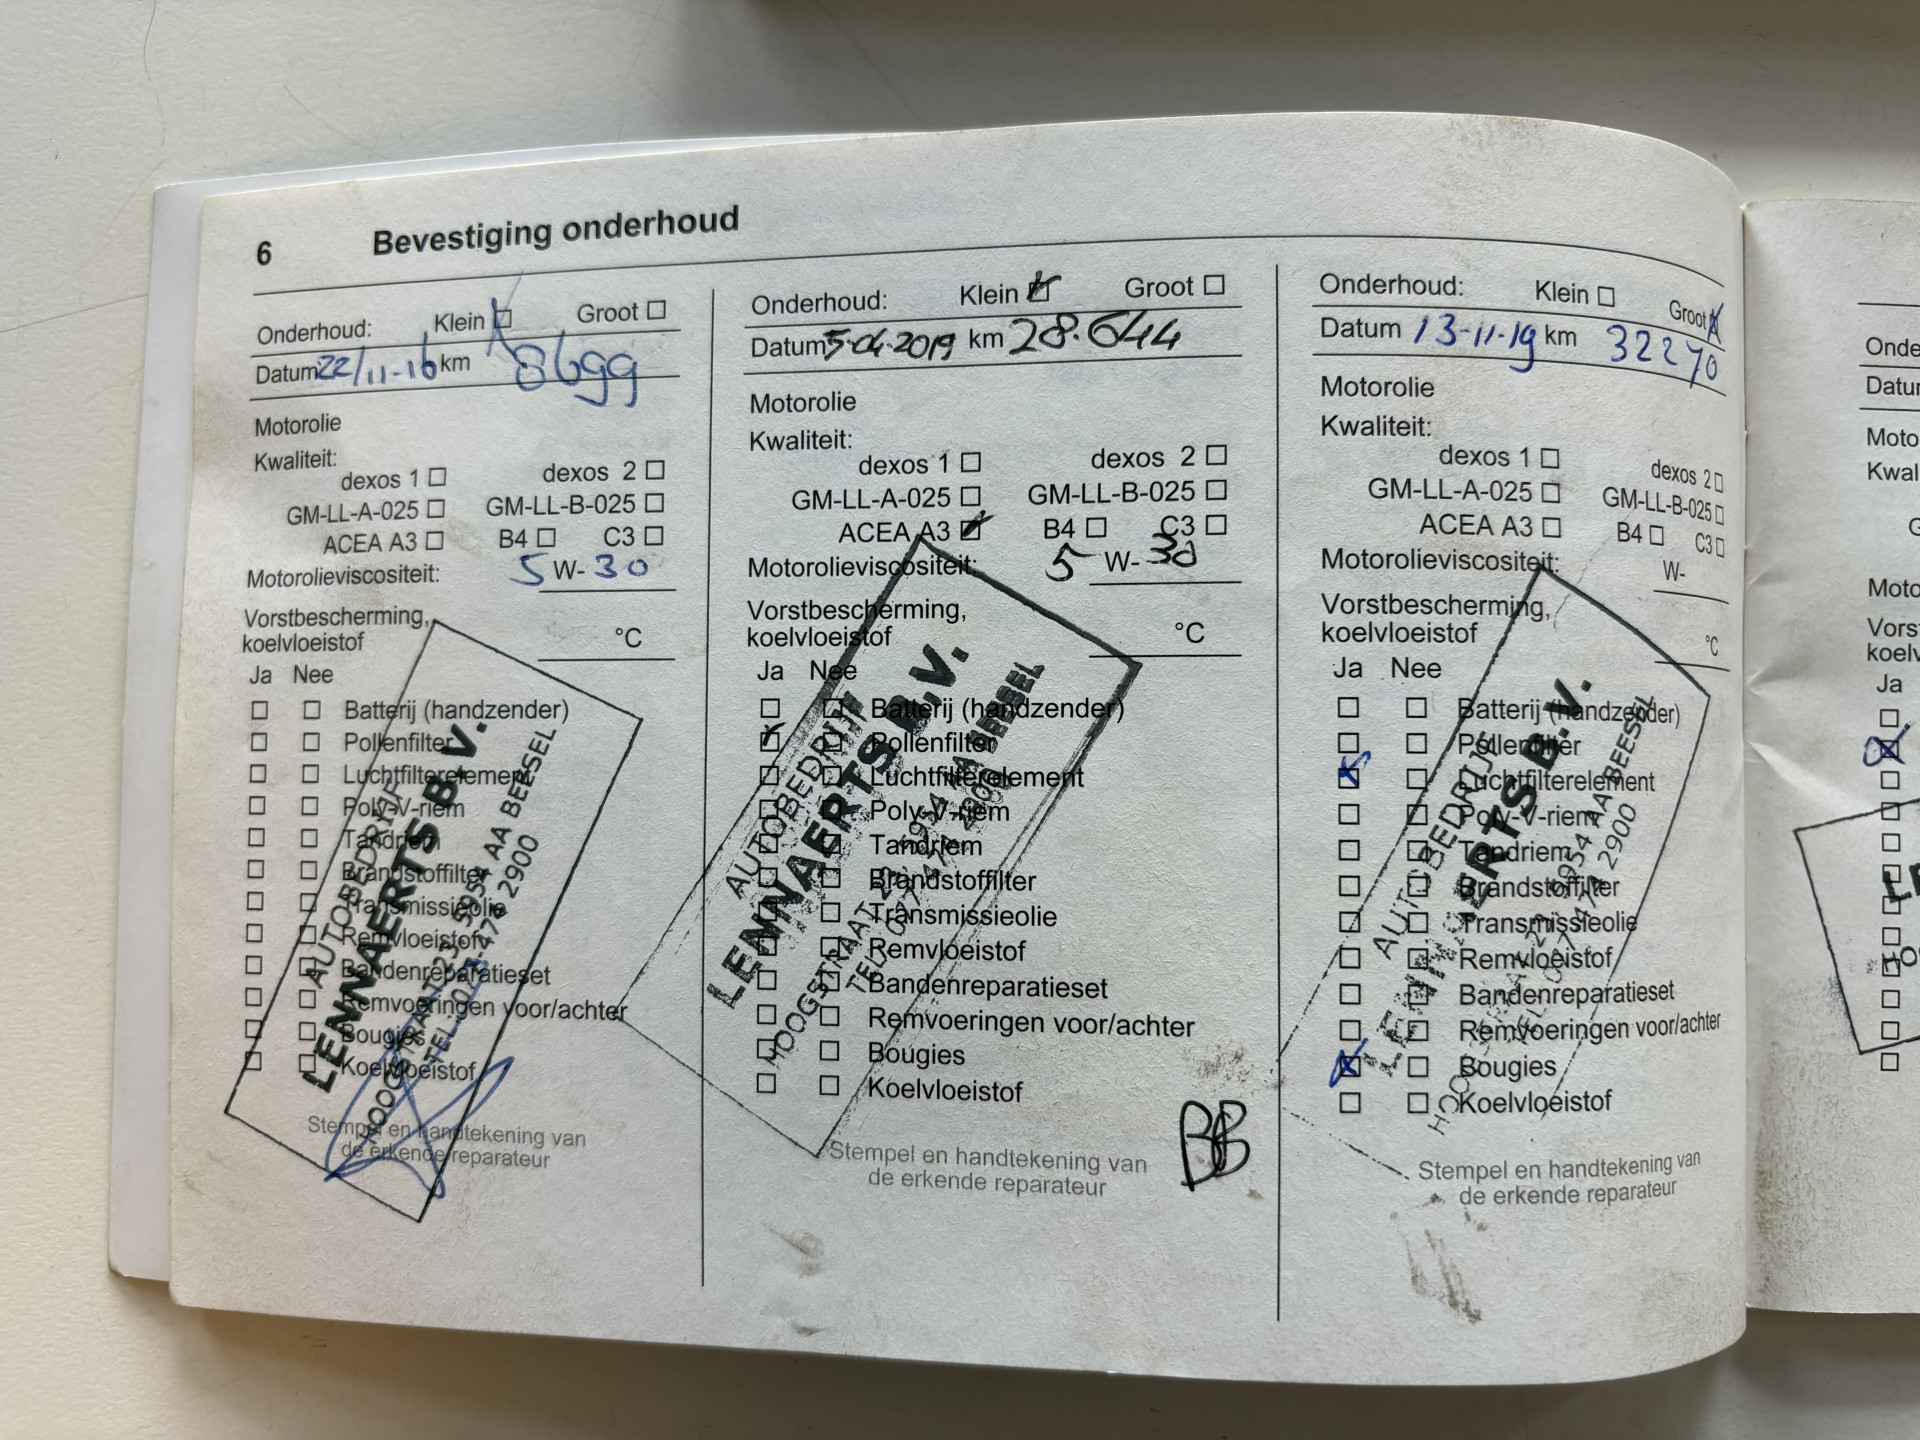 6 Bevestiging onderhoud
Onderhoud: Klein Groot
Datum 22/11-16 km 8699
Motorolie
Kwaliteit:
dexos 1 dexos 2
GM-LL-A-025 GM-LL-B-025
ACEA A3 B4 C3
Motorolieviscositeit: 5 W- 30
Vorstbescherming,
koelvloeistof °C
Ja Nee
Batterij (handzender)
Pollenfilter
Luchtfilterelement
Poly-V-riem
Tandriem
Brandstoffilter
Transmissieolie
Remvloeistof
Bandenreparatieset
Remvoeringen voor/achter
Bougies
Koelvloeistof
Stempel en handtekening van
de erkende reparateur
AUTOBEDRIJF
LENNAERTS B.V.
HOOGSTRAAT 23 5954 AA BEESEL
TEL. 077 474 2900
Onderhoud: Klein Groot
Datum 5-04-2019 km 28.644
Motorolie
Kwaliteit:
dexos 1 dexos 2
GM-LL-A-025 GM-LL-B-025
ACEA A3 B4 C3
Motorolieviscositeit: 5 W- 30
Vorstbescherming,
koelvloeistof °C
Ja Nee
Batterij (handzender)
Pollenfilter
Luchtfilterelement
Poly-V-riem
Tandriem
Brandstoffilter
Transmissieolie
Remvloeistof
Bandenreparatieset
Remvoeringen voor/achter
Bougies
Koelvloeistof
Stempel en handtekening van
de erkende reparateur
AUTOBEDRIJF
LENNAERTS B.V.
HOOGSTRAAT 23 5954 AA BEESEL
TEL. 077 474 2900
Onderhoud: Klein Groot
Datum 13-11-19 km 32270
Motorolie
Kwaliteit:
dexos 1 dexos 2
GM-LL-A-025 GM-LL-B-025
ACEA A3 B4 C3
Motorolieviscositeit: W-
Vorstbescherming,
koelvloeistof °C
Ja Nee
Batterij (handzender)
Pollenfilter
Luchtfilterelement
Poly-V-riem
Tandriem
Brandstoffilter
Transmissieolie
Remvloeistof
Bandenreparatieset
Remvoeringen voor/achter
Bougies
Koelvloeistof
Stempel en handtekening van
de erkende reparateur
AUTOBEDRIJF
LENNAERTS B.V.
HOOGSTRAAT 23 5954 AA BEESEL
TEL. 077 474 2900
Onde
Datum
Moto
Kwali
G
Moto
Vorst
koelv
Ja
LE
HO